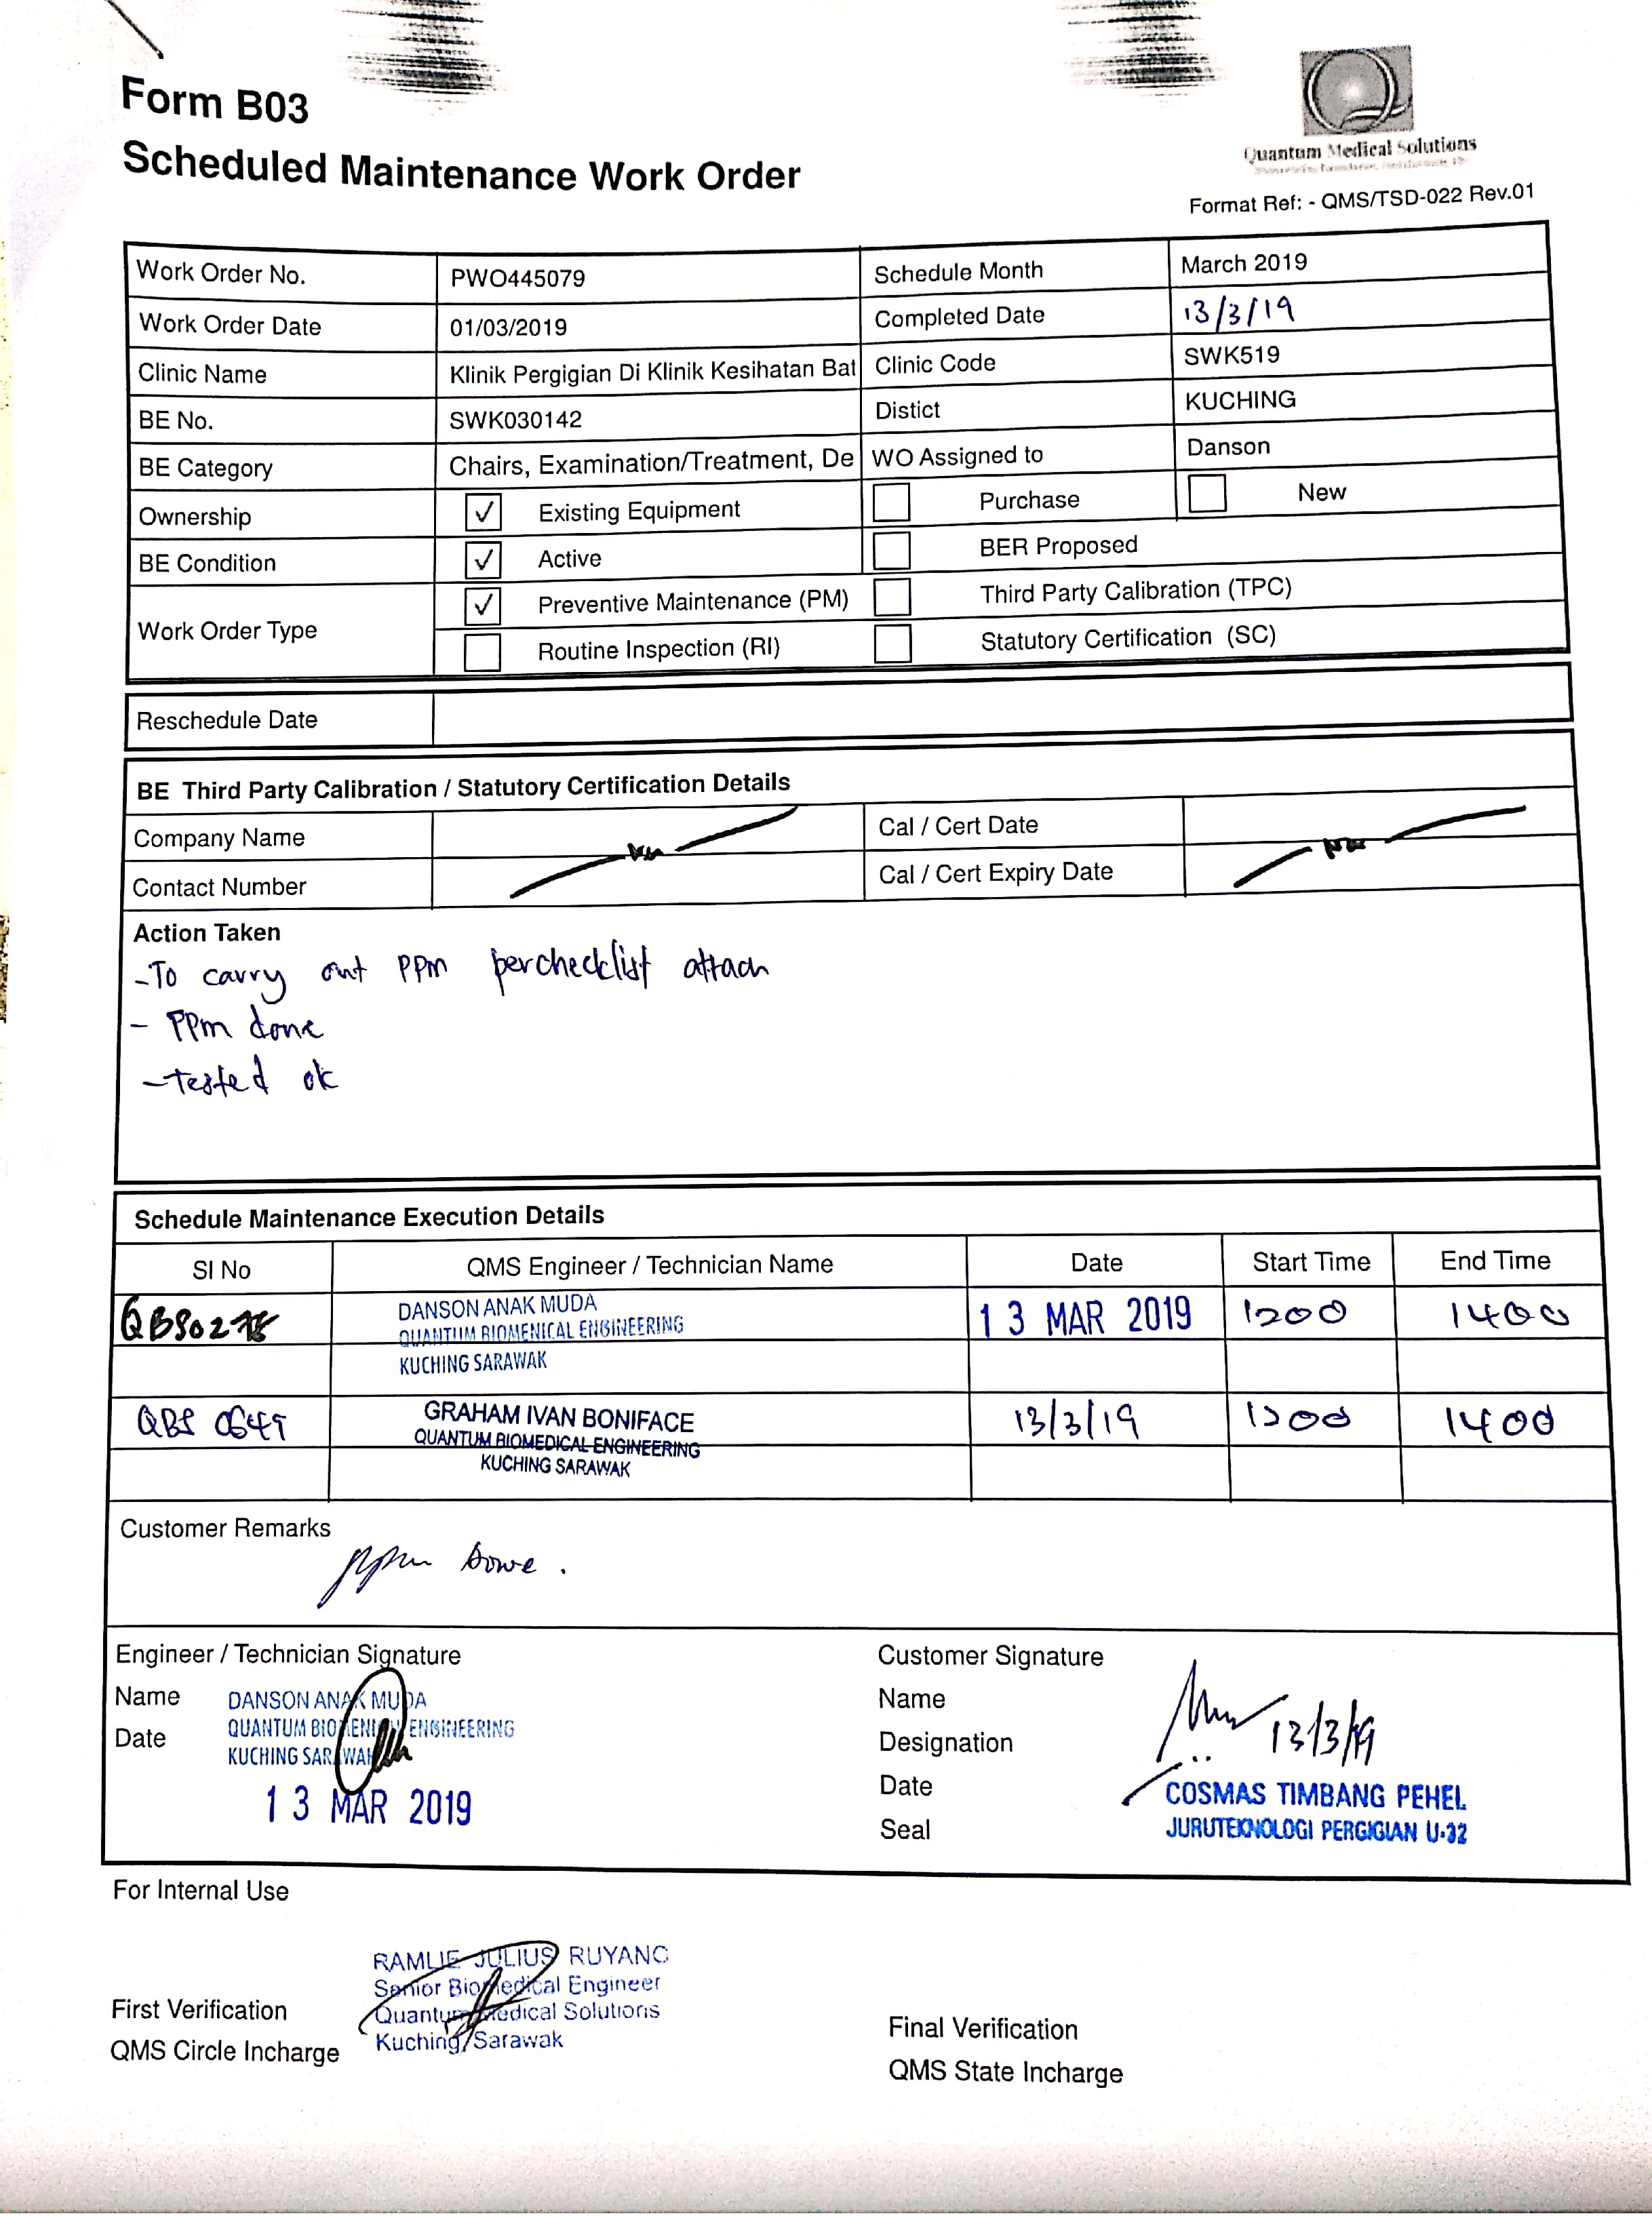 Form B03
Scheduled Maintenance Work Order
Quantum Medical Solutions
Format Ref: - QMS/TSD-022 Rev.01
Work Order No. PWO445079 Schedule Month March 2019
Work Order Date 01/03/2019 Completed Date 13/3/19
Clinic Name Klinik Pergigian Di Klinik Kesihatan Bat Clinic Code SWK519
BE No. SWK030142 Distict KUCHING
BE Category Chairs, Examination/Treatment, De WO Assigned to Danson
Ownership ✓ Existing Equipment Purchase New
BE Condition ✓ Active BER Proposed
Work Order Type
✓ Preventive Maintenance (PM) Third Party Calibration (TPC)
Routine Inspection (RI) Statutory Certification (SC)
Reschedule Date
BE Third Party Calibration / Statutory Certification Details
Company Name Cal / Cert Date
Contact Number Cal / Cert Expiry Date
Action Taken
-To carry out PPm perchecklist attach
- PPm done
-tested ok
Schedule Maintenance Execution Details
SI No QMS Engineer / Technician Name Date Start Time End Time
DANSON ANAK MUDA 13 MAR 2019 1200 1400
QUANTUM BIOMENICAL ENGINEERING
KUCHING SARAWAK
QBS 0649 GRAHAM IVAN BONIFACE 13/3/19 1200 1400
QUANTUM BIOMEDICAL ENGINEERING
KUCHING SARAWAK
Customer Remarks
ppm done.
Engineer / Technician Signature Customer Signature
Name DANSON ANAK MUDA Name
Date QUANTUM BIOMENICAL ENGINEERING Designation 13/3/19
KUCHING SARAWAK
13 MAR 2019
Date COSMAS TIMBANG PEHEL
Seal JURUTEKNOLOGI PERGIGIAN U-32
For Internal Use
RAMLIE JULIUS RUYANG
Senior Biomedical Engineer
Quantum Medical Solutions
Kuching, Sarawak
First Verification Final Verification
QMS Circle Incharge QMS State Incharge